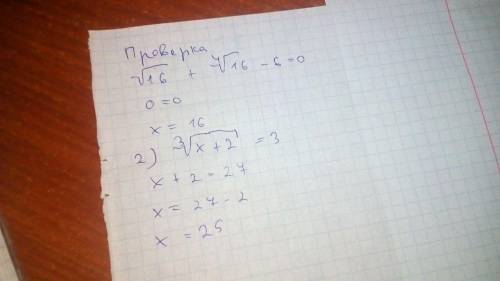 Проверка
√16 + ∜16 - 6 = 0
0 = 0
x = 16
2) ∛(x + 2) = 3
x + 2 = 27
x = 27 - 2
x = 25